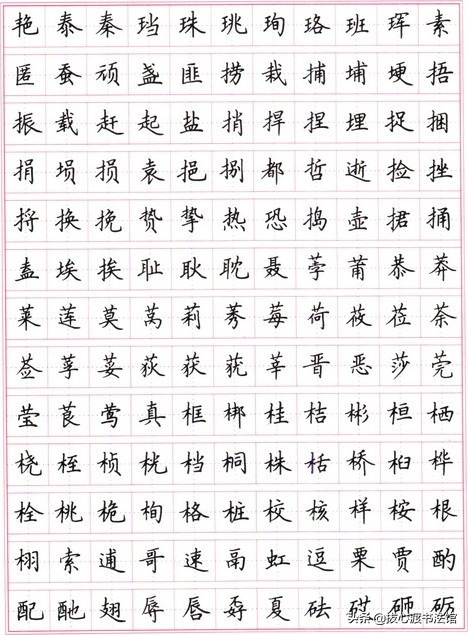 艳泰秦珰珠珧珣珞班珲素
匿蚕顽盏匪捞栽捕埔埂捂
振载赶起盐捎捍捏埋捉捆
捐埙损袁挹捌都哲逝捡挫
捋换挽贽挚热恐捣壶捃捅
盍埃挨耻耿耽聂荸莆恭莽
莱莲莫莴莉莠莓荷莜莅荼
莶莩荽荻获莸莘晋恶莎莞
莹莨莺真框梆桂桔彬桓栖
桡桎桢桄档桐株栝桥桕桦
栓桃桅栒格桩校核样桉根
栩索逋哥速鬲虹逗栗贾酌
配酏翅辱唇孬夏砝砹砸砺
头条 @拨心渡书法馆